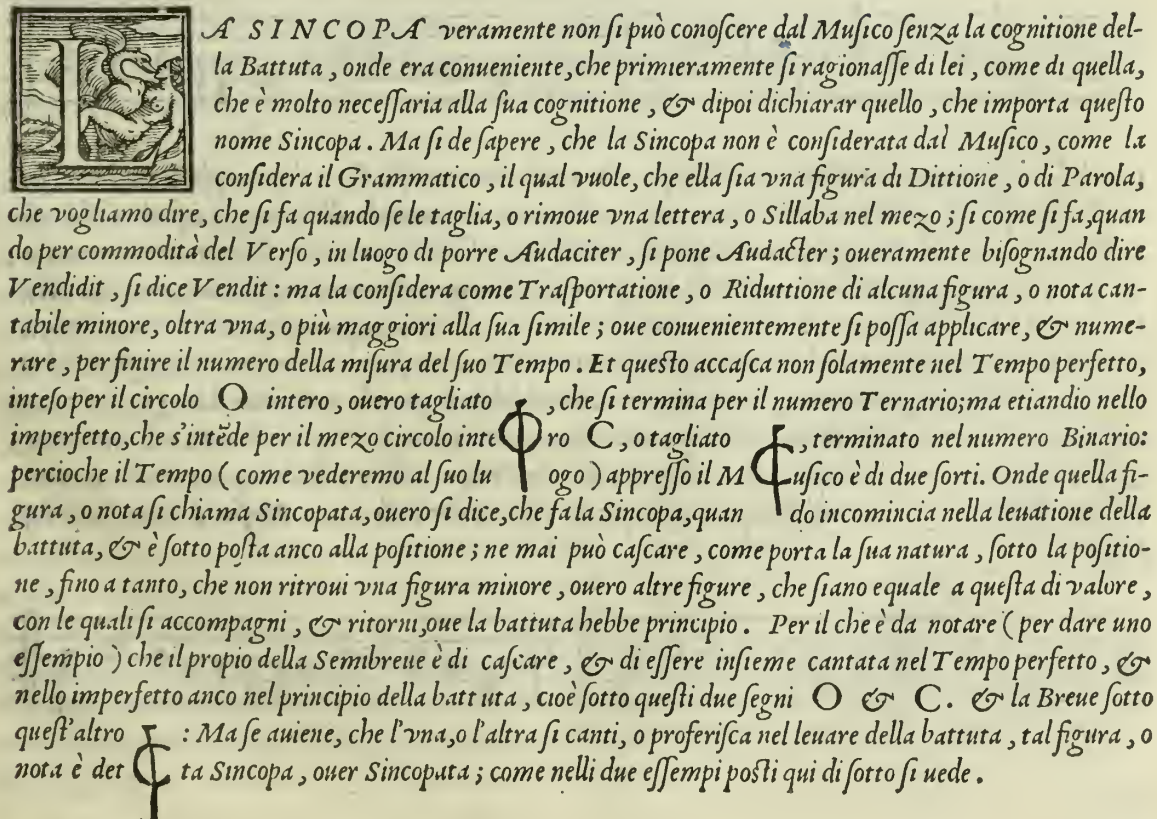 LA SINCOPA veramente non ſi può conoſcere dal Muſico ſenza la cognitione del-
la Battuta, onde era conueniente, che primieramente ſi ragionaſſe di lei, come di quella,
che è molto neceſſaria alla ſua cognitione, & dipoi dichiarar quello, che importa queſto
nome Sincopa. Ma ſi de ſapere, che la Sincopa non è conſiderata dal Muſico, come la
conſidera il Grammatico, il qual vuole, che ella ſia vna figura di Dittione, o di Parola,
che vogliamo dire, che ſi fa quando ſe le taglia, o rimoue vna lettera, o Sillaba nel mezo; ſi come ſi fa, quan
do per commodità del Verſo, in luogo di porre Audaciter, ſi pone Audacter; oueramente biſognando dire
Vendidit, ſi dice Vendit: ma la conſidera come Traſportatione, o Riduttione di alcuna figura, o nota can-
tabile minore, oltra vna, o più maggiori alla ſua ſimile; oue conuenientemente ſi poſſa applicare, & nume-
rare, per finire il numero della miſura del ſuo Tempo. Et queſto accaſca non ſolamente nel Tempo perfetto,
inteſo per il circolo O intero, ouero tagliato , che ſi termina per il numero Ternario; ma etiandio nello
imperfetto, che s'intẽde per il mezo circolo inte Φ ro C, o tagliato ₵, terminato nel numero Binario:
percioche il Tempo (come vederemo al ſuo lu ogo) appreſſo il M uſico è di due ſorti. Onde quella fi-
gura, o nota ſi chiama Sincopata, ouero ſi dice, che fa la Sincopa, quan do incomincia nella leuatione della
battuta, & è ſotto poſta anco alla poſitione; ne mai può caſcare, come porta la ſua natura, ſotto la poſitio-
ne, fino a tanto, che non ritroui vna figura minore, ouero altre figure, che ſiano equale a queſta di valore,
con le quali ſi accompagni, & ritorni, oue la battuta hebbe principio. Per il che è da notare (per dare uno
eſſempio) che il propio della Semibreue è di caſcare, & di eſſere inſieme cantata nel Tempo perfetto, &
nello imperfetto anco nel principio della battuta, cioè ſotto queſti due ſegni O & C. & la Breue ſotto
queſt'altro : Ma ſe auiene, che l'vna, o l'altra ſi canti, o proferiſca nel leuare della battuta, tal figura, o
nota è det ₵ ta Sincopa, ouer Sincopata; come nelli due eſſempi poſti qui di ſotto ſi uede.